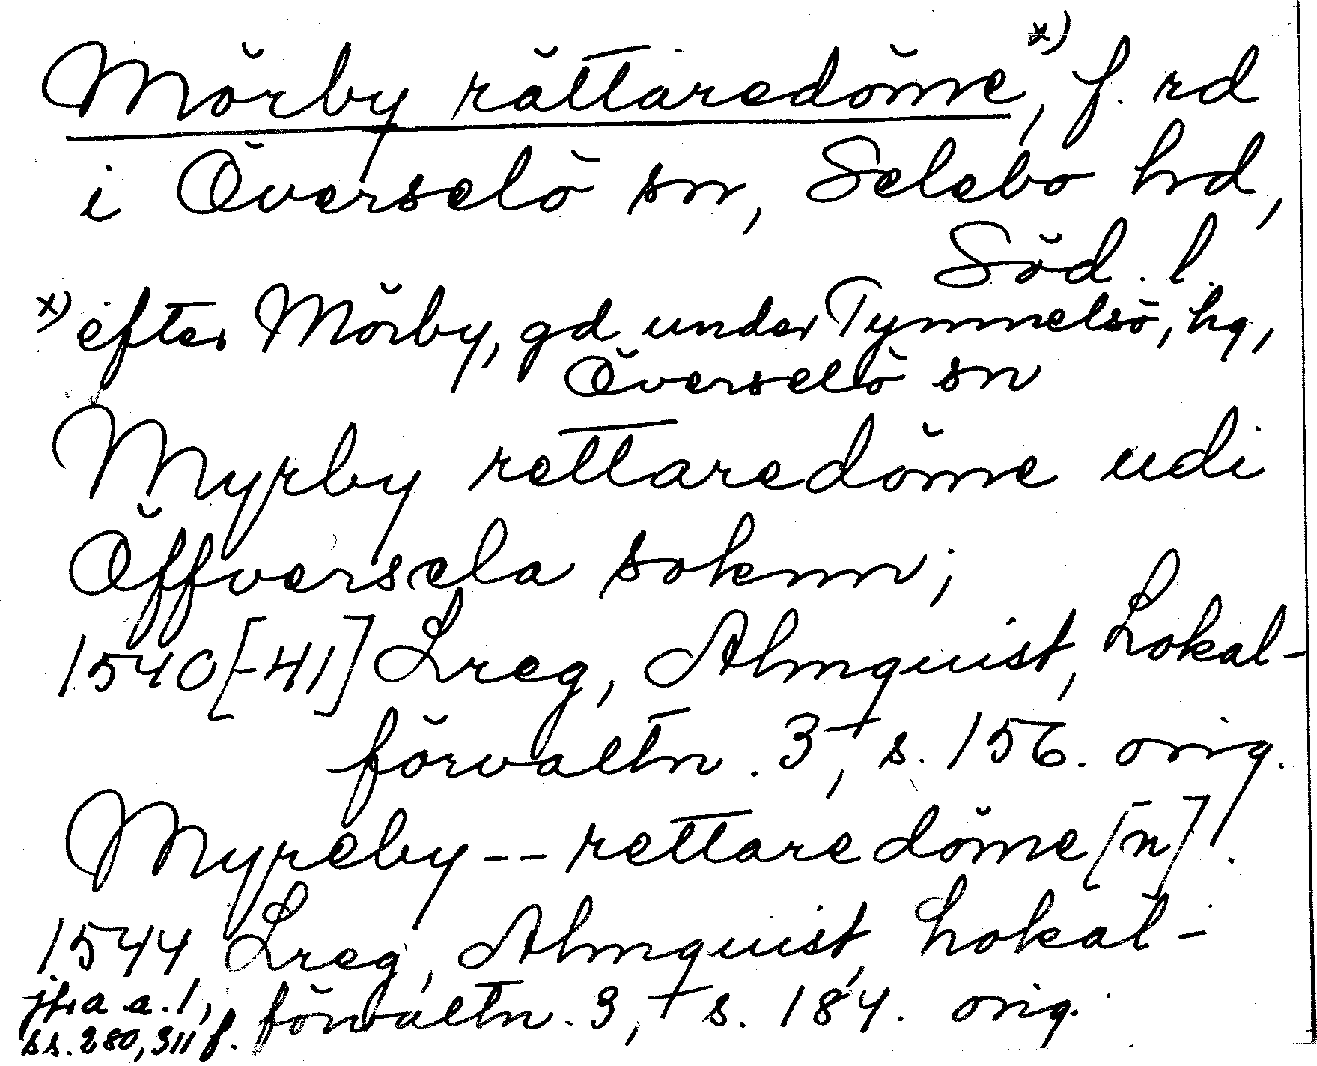 Mörby rättaredöme x), f. rd
i Överselö sn, Selebo hd,
Söd. l.
x) efter Mörby, gd under Tynnelsö, hg,
Överselö sn
Myrby rettaredöme udi
Öffversela soknn;
1540[-41] Lreg, Almquist, Lokal-
förvaltn. 3, s. 156. orig.
Myreby -- rettaredöme[n].
1544 Lreg, Almquist, Lokal-
förvaltn. 3, s. 184. orig.
jfr a a. 1,
ss. 280, 311 f.